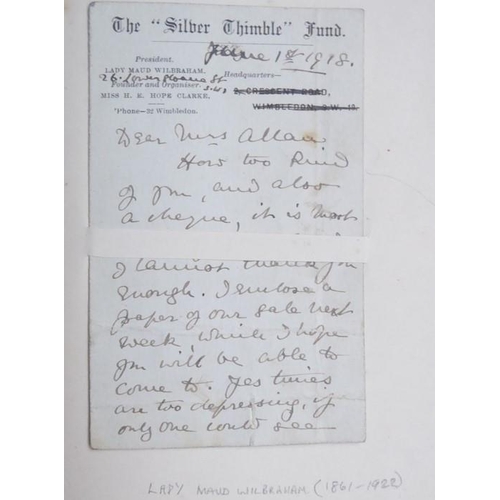 The "Silver Thimble" Fund.
June 1st 1918.
President.
LADY MAUD WILBRAHAM,
Headquarters—
26. Lower Sloane St
S.W.1
Founder and Organiser.
2, CRESCENT ROAD,
MISS H. E. HOPE CLARKE.
WIMBLEDON, S.W. 19.
'Phone—32 Wimbledon.
Dear Mrs Allan
How too kind
of you, and also
a cheque, it is most
I cannot thank you
enough. I enclose a
paper of our sale next
week, which I hope
you will be able to
come to. Yes times
are too depressing, if
only one could see
LADY MAUD WILBRAHAM (1861-1922)